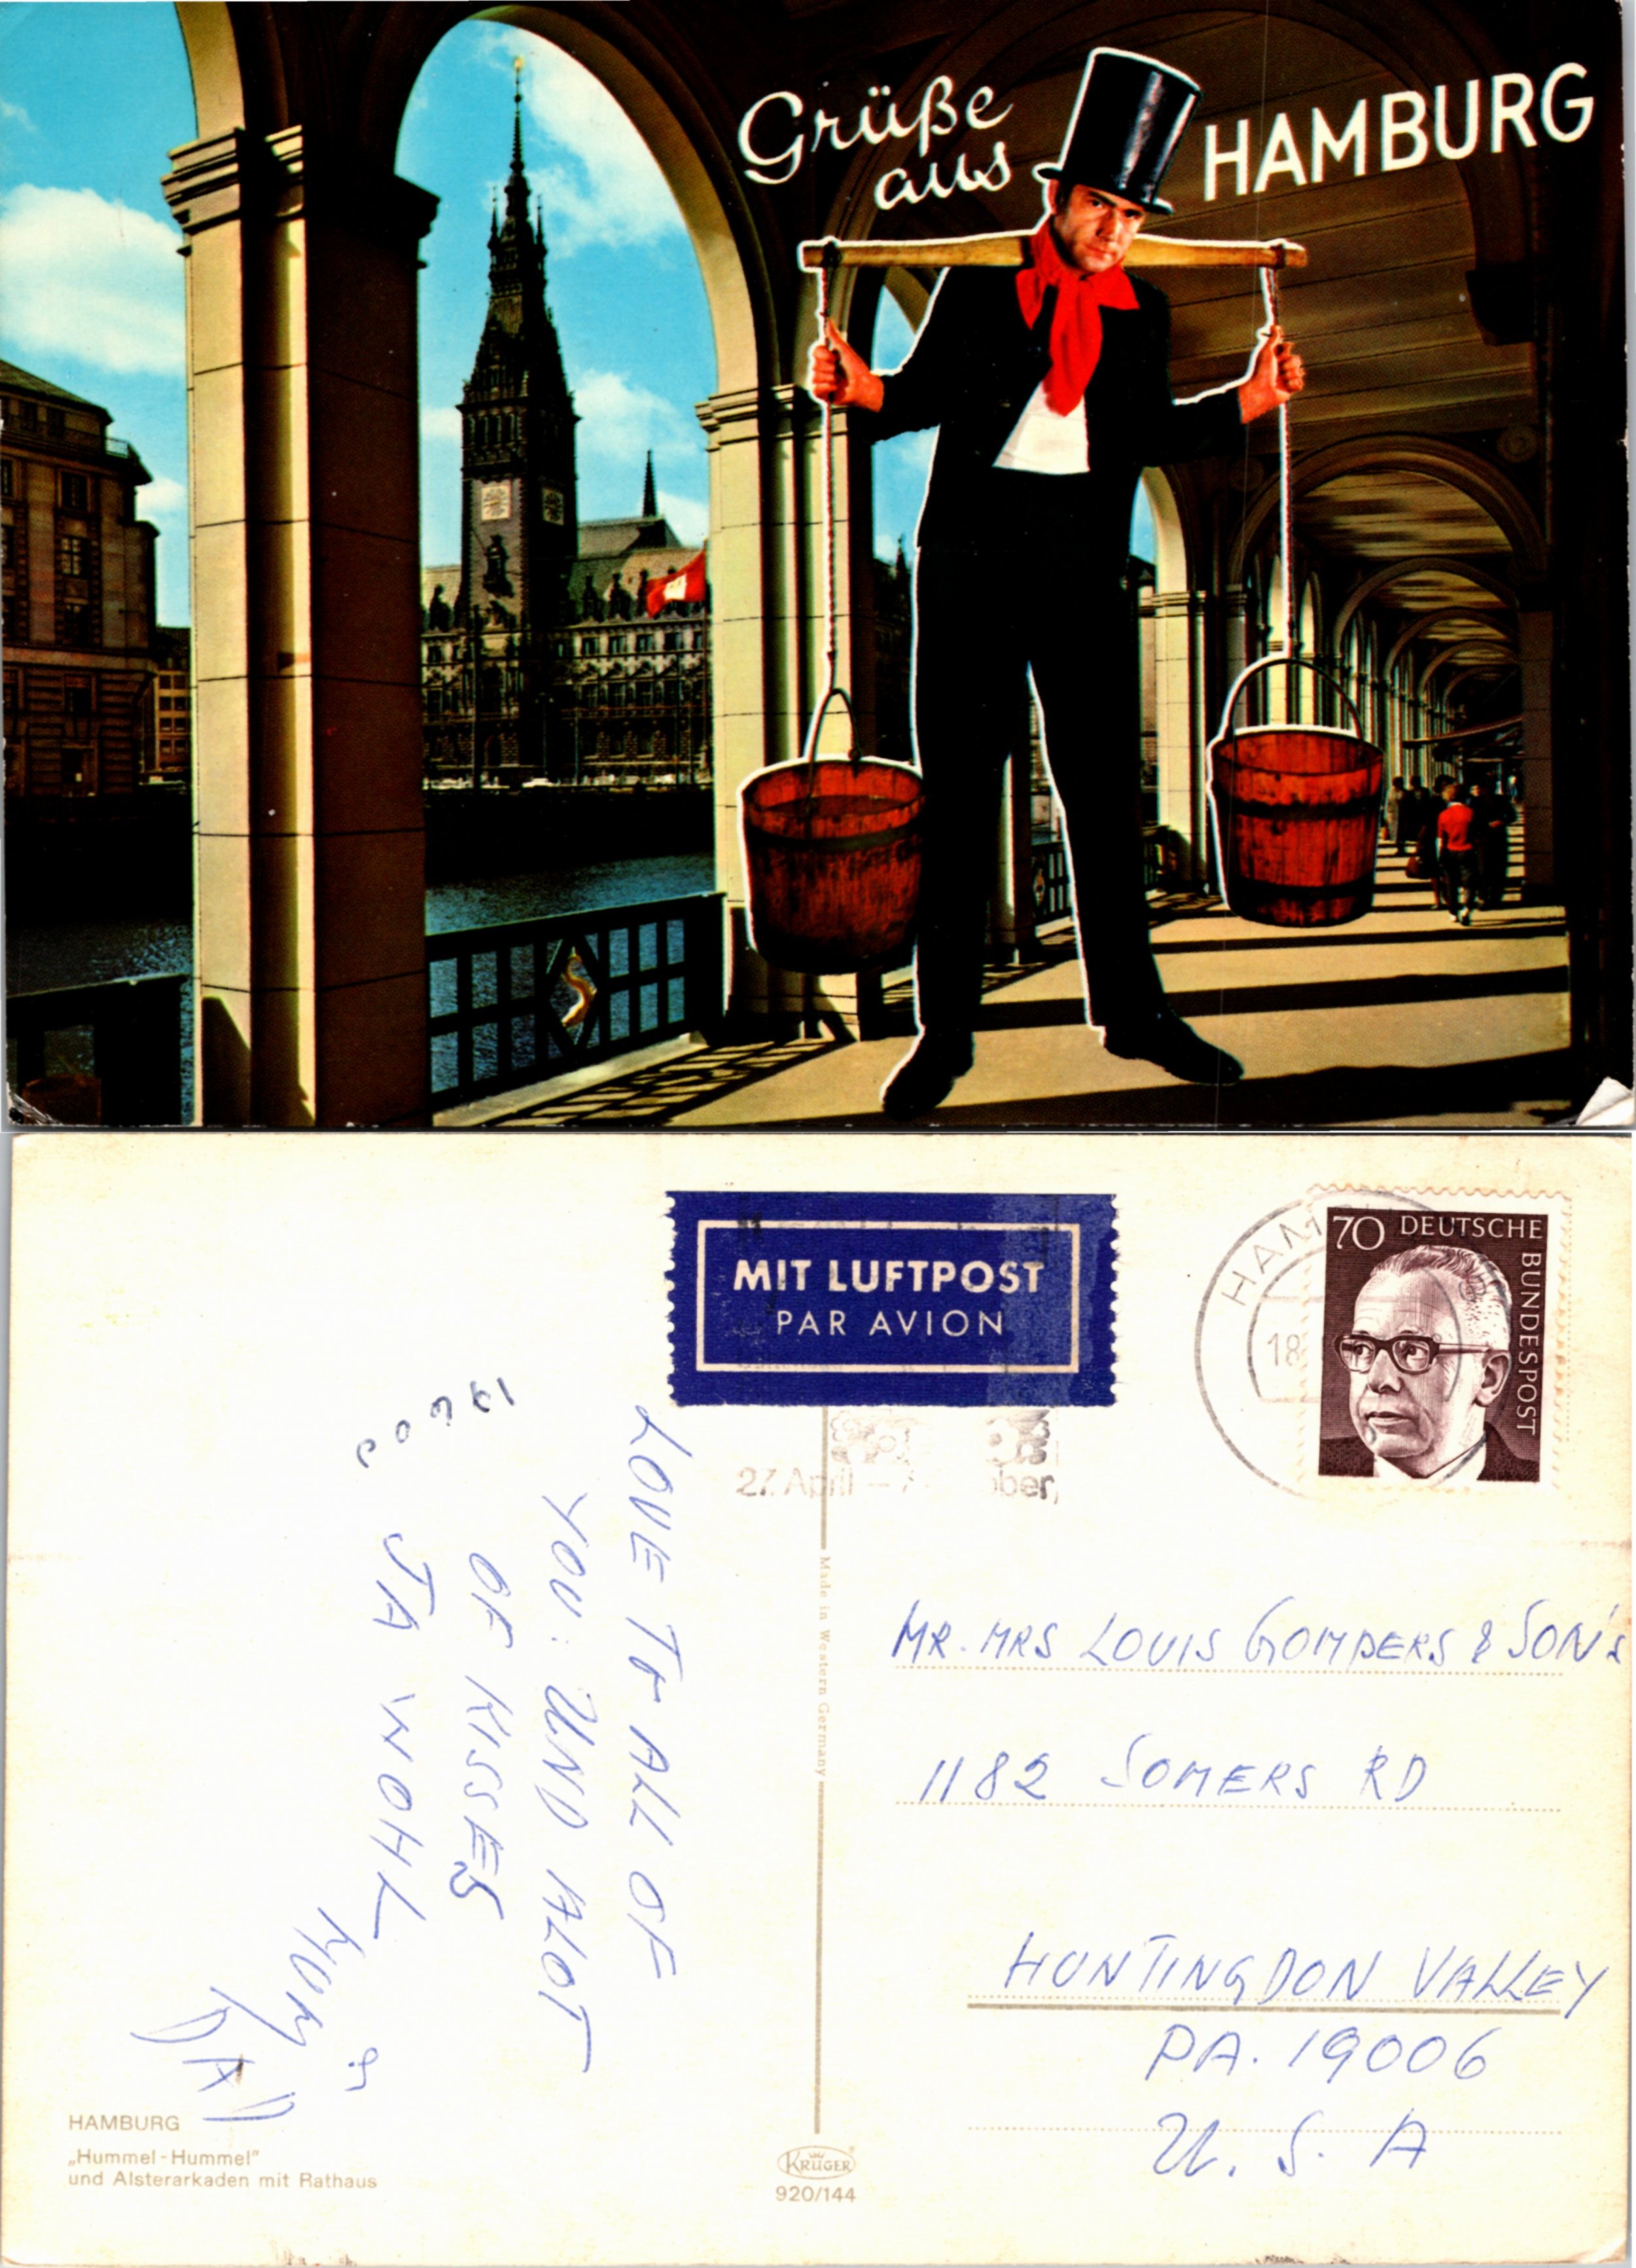 Grüße
aus
HAMBURG
MIT LUFTPOST
PAR AVION
70 DEUTSCHE
BUNDESPOST
HAM
18
27. April –
ober,
LOVE TO ALL OF
YOU: UND ALOT
OF KISSES
JA WOHL
MUM &
DAD
Made in Western Germany
MR. MRS LOUIS GOMPERS & SON'S
1182 SOMERS RD
HUNTINGDON VALLEY
PA. 19006
U. S. A
HAMBURG
„Hummel-Hummel"
und Alsterarkaden mit Rathaus
KRÜGER
920/144